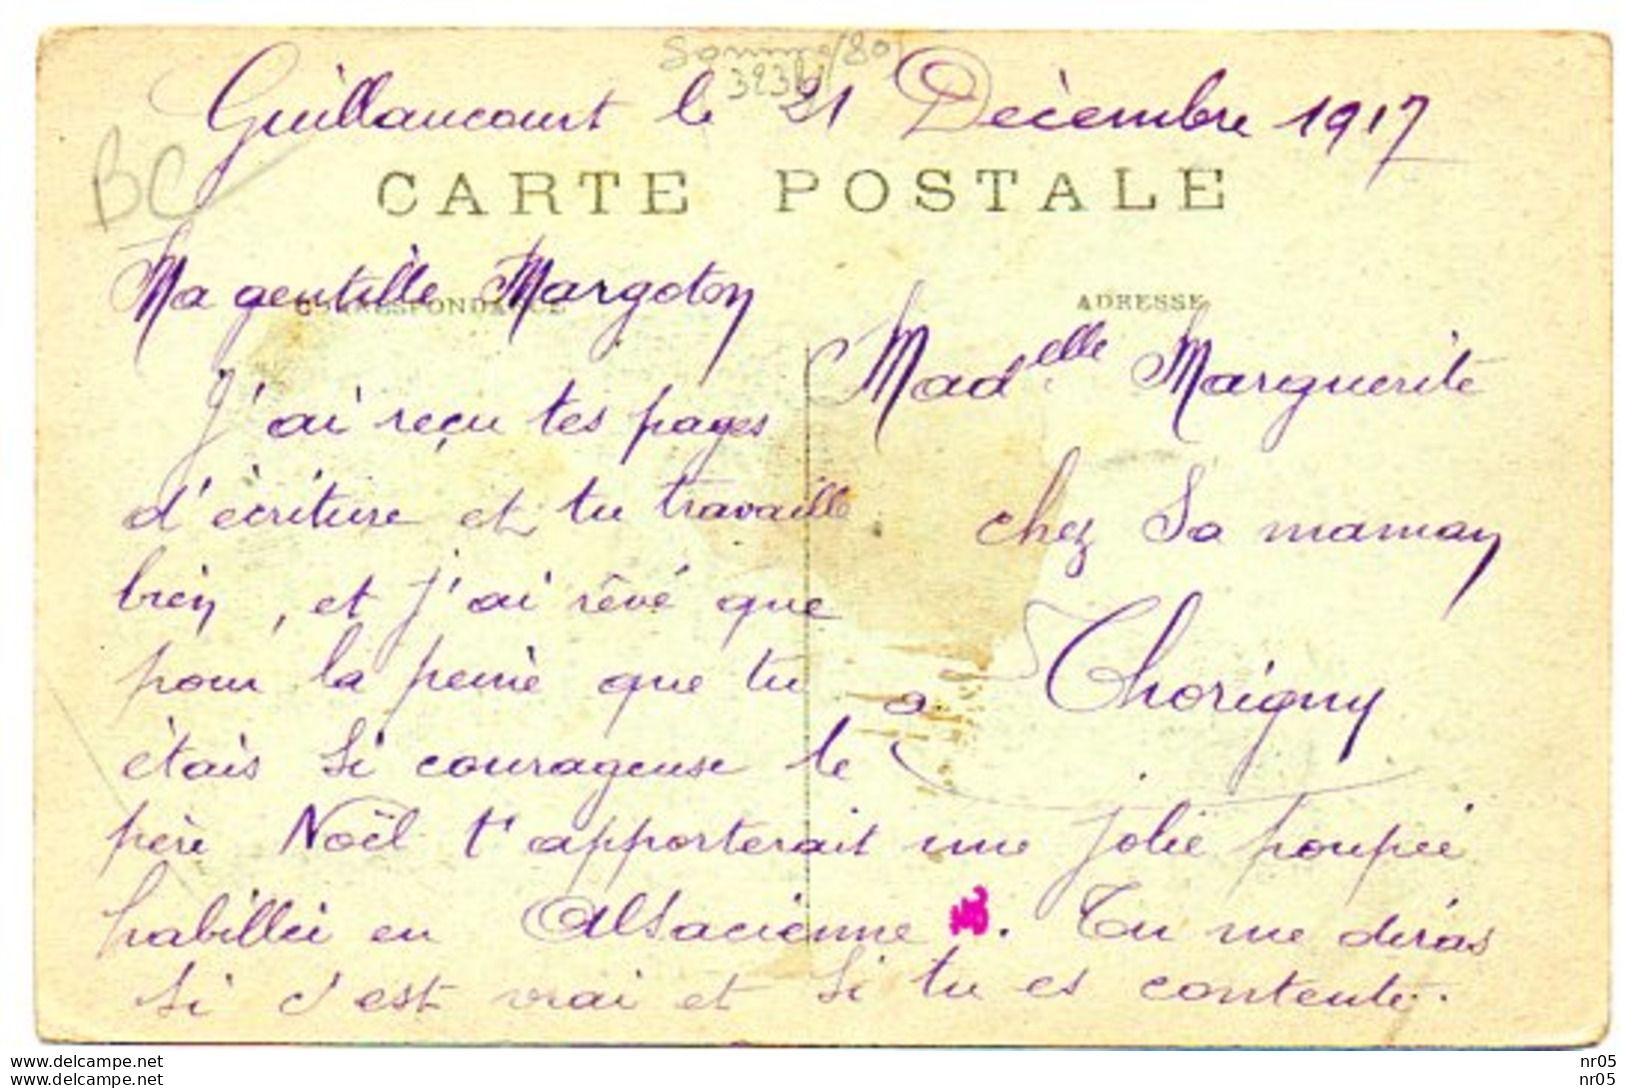 Somme/80
Guillaucourt le 21 Décembre 1917
BC
CARTE POSTALE
CORRESPONDANCE
ADRESSE
Ma gentille Margoton
J'ai reçu tes pages
d'écriture et tu travaille
bien, et j'ai rêvé que
pour la peine que tu
étais si courageuse le
père Noël t'apporterait une jolie poupée
habillée en Alsacienne. Tu me diras
si c'est vrai et si tu es contente..
Madelle Marguerite
chez Sa maman
a Thorigny
www.delcampe.net
www.delcampe.net
nr05
nr05